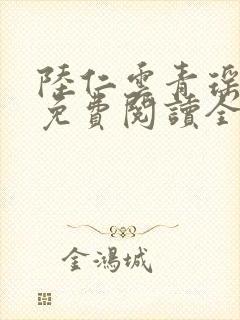 陸仁雲青瑤
免費閱讀全
金鴻城